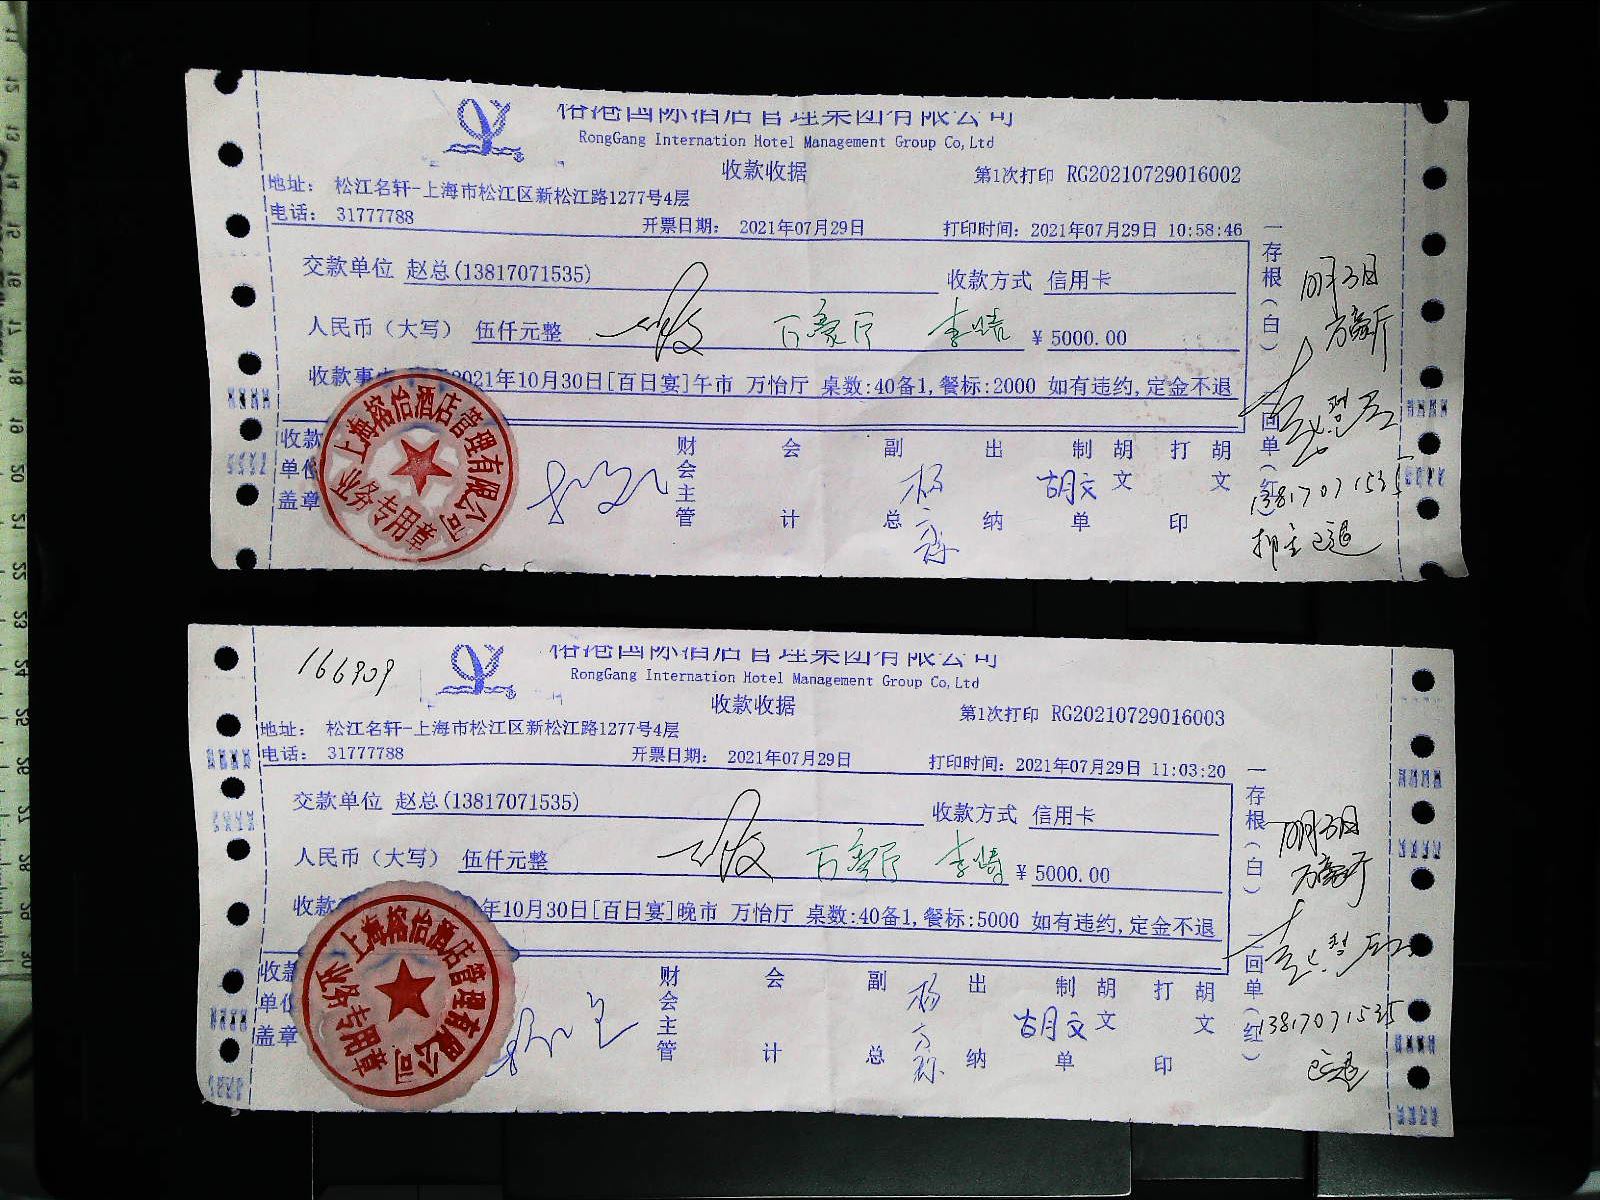 榕港国际酒店管理集团有限公司
RongGang Internation Hotel Management Group Co,Ltd
收款收据
第1次打印 RG20210729016002
地址： 松江名轩-上海市松江区新松江路1277号4层
电话： 31777788
开票日期： 2021年07月29日
打印时间：2021年07月29日 10:58:46
交款单位 赵总(13817071535)
收款方式 信用卡
人民币（大写） 伍仟元整
万豪厅
￥5000.00
收款事由
2021年10月30日[百日宴]午市 万怡厅 桌数:40备1,餐标:2000 如有违约,定金不退
一存根（白）
二回单（红）
10月30日
万豪厅
13817071535
已退
收款单位盖章
财会主管
会计
副总
出纳
制单
胡文
打印
胡文
胡文
上海榕怡酒店管理有限公司
业务专用章
166909
榕港国际酒店管理集团有限公司
RongGang Internation Hotel Management Group Co,Ltd
收款收据
第1次打印 RG20210729016003
地址： 松江名轩-上海市松江区新松江路1277号4层
电话： 31777788
开票日期： 2021年07月29日
打印时间：2021年07月29日 11:03:20
交款单位 赵总(13817071535)
收款方式 信用卡
人民币（大写） 伍仟元整
万豪厅
￥5000.00
收款
年10月30日[百日宴]晚市 万怡厅 桌数:40备1,餐标:5000 如有违约,定金不退
一存根（白）
二回单（红）
10月30日
万豪厅
13817071535
已退
收款单位盖章
财会主管
会计
副总
出纳
制单
胡文
打印
胡文
胡文
上海榕怡酒店管理有限公司
业务专用章